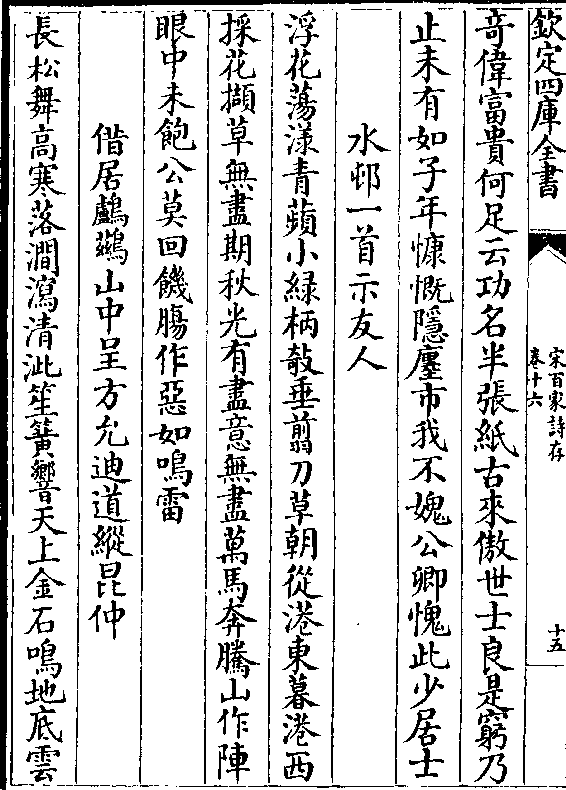 欽定四庫全書
宋百家詩存
卷十六
十五
奇偉富貴何足云功名半張紙古來傲世士良是窮乃
止未有如子年慷慨隱廛市我不媿公卿愧此少居士
水邨一首示友人
浮花蕩漾青蘋小綠柄敧垂翦刀草朝從港東暮港西
採花擷草無盡期秋光有盡意無盡萬馬奔騰山作陣
眼中未飽公莫回饑腸作惡如鳴雷
偕居鸕鷀山中呈方允迪道縱昆仲
長松舞高寒落澗瀉清泚笙簧響天上金石鳴地底雲